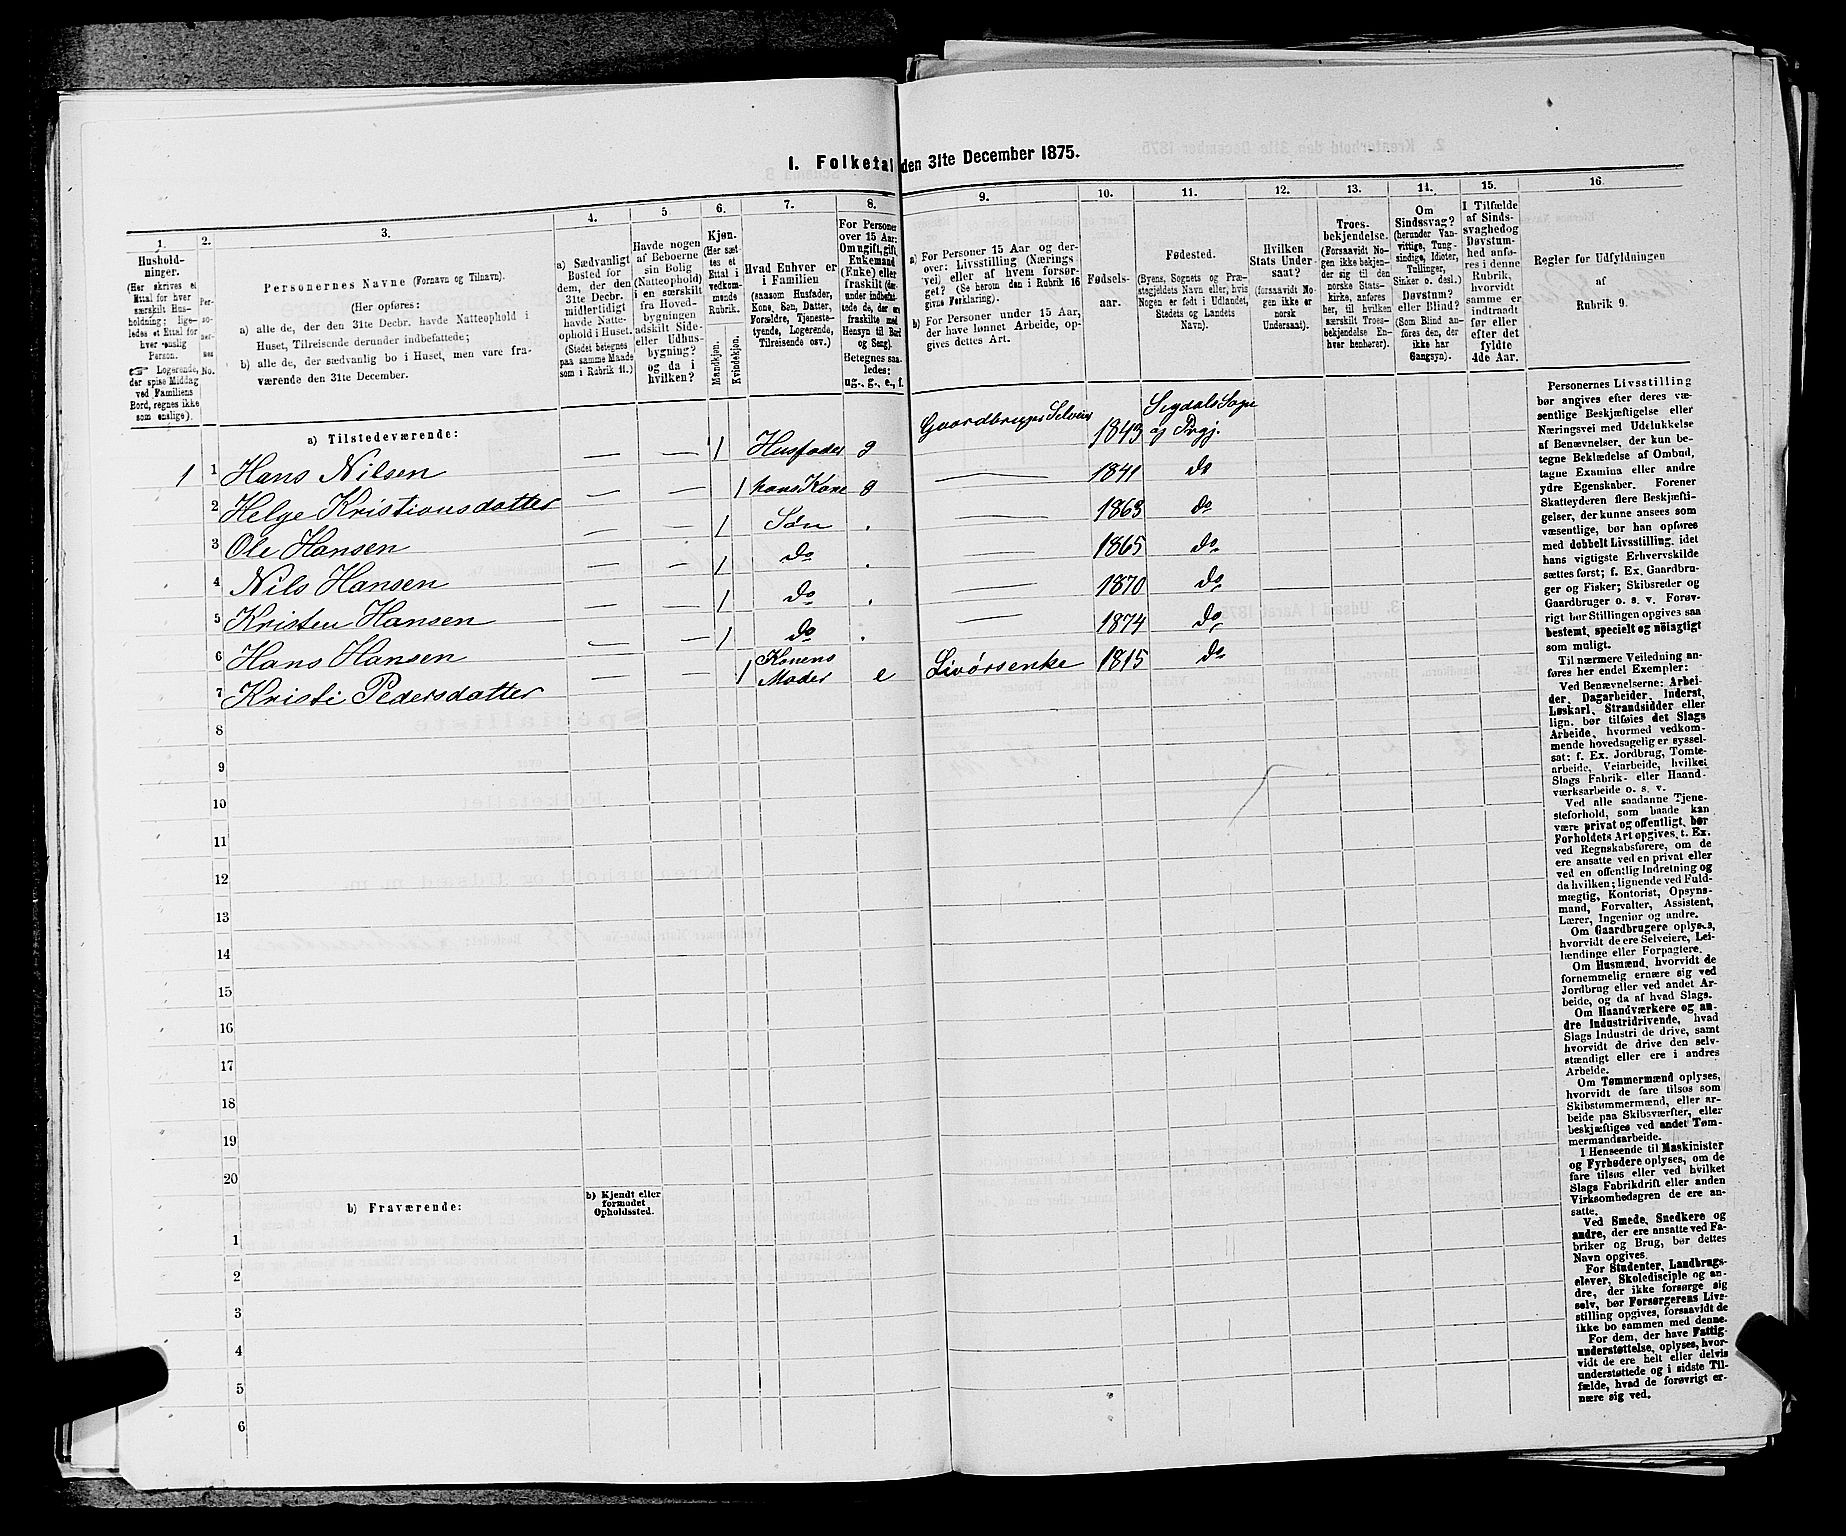 1. Folketal den 31te December 1875.
1.
Hushold-
ninger.
(Her skrives et
Ettal for hver
særskilt Hus-
holdning; lige-
ledes et Ettal for
hver enslig
Person.
☞ Logerende,
der spise Middag
ved Familiens
Bord, regnes ikke
som enslige).
2.
Per-
so-
ner-
nes
No.
3.
Personernes Navne (Fornavn og Tilnavn).
(Her opføres:
a) alle de, der den 31te Decbr. havde Natteophold i
Huset, Tilreisende derunder indbefattede;
b) alle de, der sædvanlig bo i Huset, men vare fra-
værende den 31te December.
4.
a) Sædvanligt
Bosted for
dem, der den
31te Decbr.
midlertidigt
havde Natte-
ophold i Huset.
(Stedet betegnes
paa samme Maade
som i Rubrik 11.)
5.
Havde nogen
af Beboerne
sin Bolig
(Natteophold)
i en særskilt
fra Hoved-
bygningen
adskilt Side-
eller Udhus-
bygning?
og da i
hvilken?
6.
Kjøn.
(Her sæt-
tes et
Ettal i
vedkom-
mende
Rubrik.
Mandkjøn.
Kvindekjøn.
7.
Hvad Enhver er
i Familien
(saasom Husfader,
Kone, Søn, Datter,
Forældre, Tjeneste-
tyende, Logerende,
Tilreisende osv.)
8.
For Personer
over 15 Aar:
Om ugift, gift,
Enkemand
(Enke) eller
fraskilt (der-
under indbefat-
tede de, der ere
fraskilte med
Hensyn til Bord
og Seng).
Betegnes saa-
ledes:
ug., g., e., f.
9.
a) For Personer 15 Aar og der-
over: Livsstilling (Nærings
vei) eller af hvem forsør-
get? (Se herom den i Rubrik 16
givne Forklaring).
b) For Personer under 15 Aar,
der have lønnet Arbeide, op-
gives dettes Art.
10.
Fødsels-
aar.
11.
Fødested.
(Byens, Sognets og Præ-
stegjeldets Navn eller, hvis
Nogen er født i Udlandet,
Stedets og Landets
Navn).
12.
Hvilken
Stats Under-
saat?
(forsaavidt No-
gen ikke er
norsk
Undersaat).
13.
Troes-
bekjendelse.
(Forsaavidt No-
gen ikke bekjen-
der sig til den
norske Stats-
kirke, anføres
her, til hvilken
særskilt Troes-
bekjendelse En-
hver henhører).
14.
Om
Sindssvag?
(herunder Van-
vittige, Tung-
sindige, Idioter,
Tullinger,
Sinker o. desl.)
Døvstum?
eller Blind?
(Som Blind an-
føres den, der
ikke har
Gangsyn).
15.
I Tilfælde
af Sinds-
svaghed og
Døvstum-
hed anfø-
res i denne
Rubrik,
hvorvidt
samme er
indtraadt
før eller
efter det
fyldte
4de Aar.
16.
Regler for Udfyldningen
af
Rubrik 9.
a) Tilstedeværende:
1 1 Hans Nilsen — — 1 Husfader g Gaardbruger Selveier 1843 Sigdals Sogn og Prgj.
2 Helge Kristiansdatter — — 1 hans Kone g — 1841 do
3 Ole Hansen — — 1 Søn . — 1863 do
4 Nils Hansen — — 1 do . — 1865 do
5 Kristen Hansen — — 1 do . — 1870 do
6 Hans Hansen — — 1 do . — 1874 do
7 Kristi Pedersdatter — — 1 Konens Moder e Livørsenke 1815 do
8
9
10
11
12
13
14
15
16
17
18
19
20
b) Fraværende:
b) Kjendt eller
formodet
Opholdssted.
1
2
3
4
5
6
Personernes Livsstilling
bør angives efter deres væ-
sentlige Beskjæftigelse eller
Næringsvei med Udelukkelse
af Benævnelser, der kun be-
tegne Beklædelse af Ombud,
tagne Examina eller andre
ydre Egenskaber. Forener
Skatteyderen flere Beskjæfti-
gelser, der kunne ansees som
væsentlige, bør han opføres
med dobbelt Livsstilling, idet
hans vigtigste Erhvervskilde
sættes først; f. Ex. Gaardbru-
ger og Fisker; Skibsreder og
Gaardbruger o. s. v. Forøv-
rigt bør Stillingen opgives saa
bestemt, specielt og nöiagtigt
som muligt.
Til nærmere Veiledning an-
føres her endel Exempler:
Ved Benævnelserne: Arbei-
der, Dagarbeider, Inderst,
Løskarl, Strandsidder eller
lign. bør tilføies det Slags
Arbeide, hvormed vedkom-
mende hovedsagelig er syssel-
sat: f. Ex. Jordbrug, Tomte-
arbeide, Veiarbeide, hvilket
Slags Fabrik- eller Haand-
værksarbeide o. s. v.
Ved alle saadanne Tjene-
steforhold, som baade kan
være privat og offentligt, bør
Forholdets Art opgives, t. Ex.
ved Regnskabsførere, om de
ere ansatte ved en privat eller
ved en offentlig Indretning og
da hvilken; lignende ved Fuld-
mægtig, Kontorist, Opsyns-
mand, Forvalter, Assistent,
Lærer, Ingeniør og andre.
Om Gaardbrugere oplyses,
hvorvidt de ere Selveiere, Lei-
lændinge eller Forpagtere.
Om Husmænd, hvorvidt de
fornemmelig ernære sig ved
Jordbrug eller ved andet Ar-
beide, og da af hvad Slags.
Om Haandværkere og an-
dre Industridrivende, hvad
Slags Industri de drive, samt
hvorvidt de drive den selv-
stændigt eller ere i andres
Arbeide.
Om Tømmermænd oplyses,
hvorvidt de fare tilsøs som
Skibstømmermænd, eller ar-
beide paa Skibsværfter, eller
beskjæftiges ved andet Tøm-
mermandsarbeide.
I Henseende til Maskinister
og Fyrbødere oplyses, om de
fare tilsøs eller ved hvilket
Slags Fabrikdrift eller anden
Virksomhedsgren de ere an-
satte.
Ved Smede, Snedkere og
andre, der ere ansatte ved Fa-
briker og Brug, bør dettes
Navn opgives.
For Studenter, Landbrugs-
elever, Skoledisciple og an-
dre, der ikke forsørge sig
selv, bør Forsørgerens Livs-
stilling opgives, forsaavidt de
ikke bo sammen med denne.
For dem, der have Fattig-
understøttelse, oplyses, hvor-
vidt de ere helt eller delvis
understøttede og i sidste Til-
fælde, hvad de forøvrigt er-
nære sig ved.